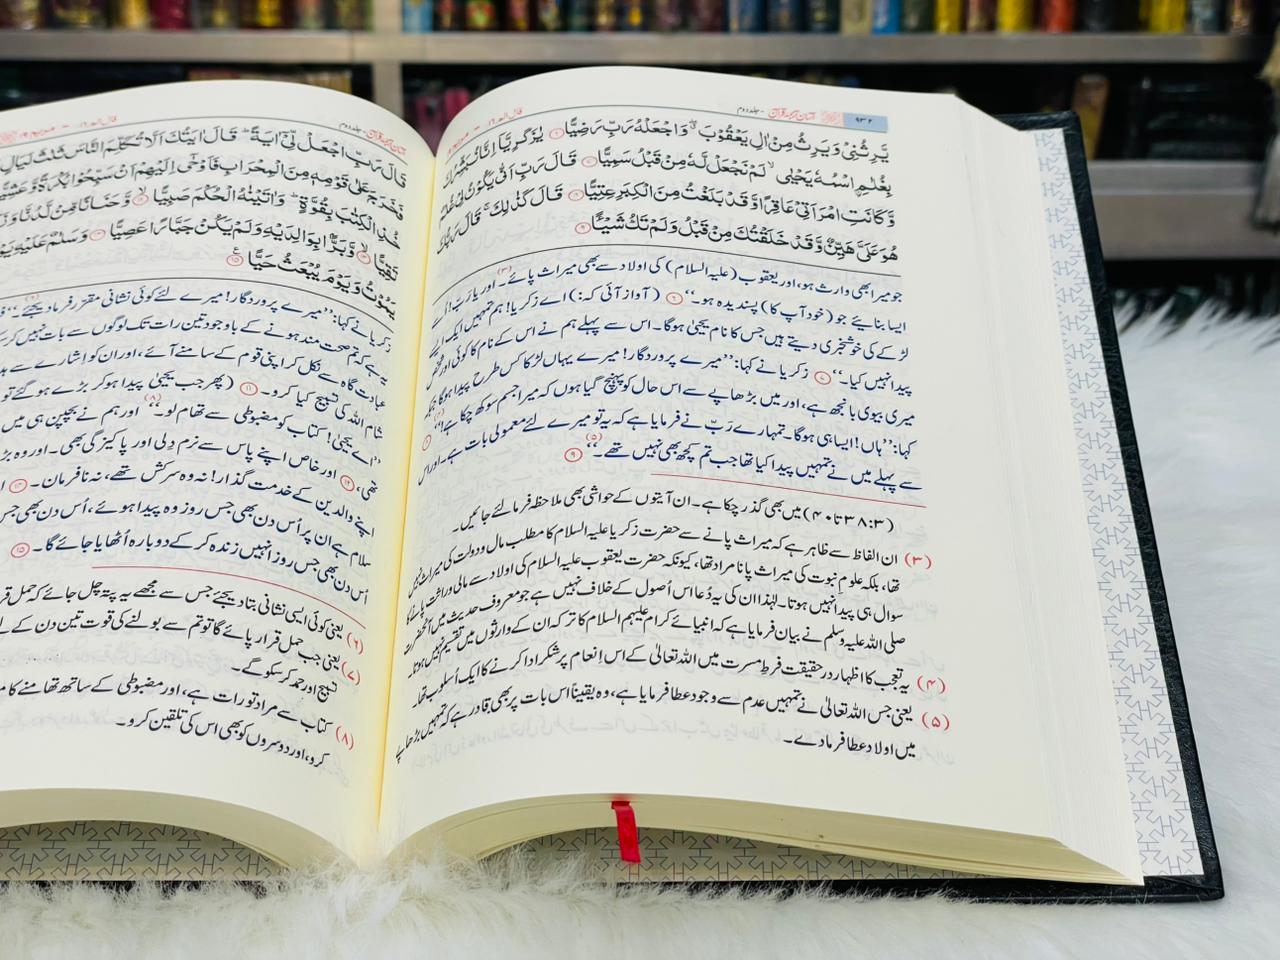 ۹۳۲ آسان ترجمۂ قرآن - جلد دوم
يَّرِثُنِيْ وَيَرِثُ مِنْ اٰلِ يَعْقُوْبَ ۖ وَاجْعَلْهُ رَبِّ رَضِيًّا ۶ يٰزَكَرِيَّآ اِنَّا نُبَشِّرُكَ
بِغُلٰمِ اسْمُهٗ يَحْيٰى ۙ لَمْ نَجْعَلْ لَّهٗ مِنْ قَبْلُ سَمِيًّا ۷ قَالَ رَبِّ اَنّٰى يَكُوْنُ لِيْ غُلٰمٌ
وَّكَانَتِ امْرَاَتِيْ عَاقِرًا وَّقَدْ بَلَغْتُ مِنَ الْكِبَرِ عِتِيًّا ۸ قَالَ كَذٰلِكَ ۚ قَالَ رَبُّكَ
هُوَ عَلَيَّ هَيِّنٌ وَّقَدْ خَلَقْتُكَ مِنْ قَبْلُ وَلَمْ تَكُ شَيْـًٔا ۹
جو میرا بھی وارث ہو، اور یعقوب (علیہ السلام) کی اولاد سے بھی میراث پائے۔ (۳) اور یا رَبّ! اُسے
ایسا بنایئے جو (خود آپ کا) پسندیدہ ہو۔‘‘ ۶ (آواز آئی کہ:) اے زکریا! ہم تمہیں ایک ایسے
لڑکے کی خوشخبری دیتے ہیں جس کا نام یحییٰ ہوگا۔ اس سے پہلے ہم نے اس کے نام کا کوئی اور شخص
پیدا نہیں کیا۔‘‘ ۷ زکریا نے کہا: ’’میرے پروردگار! میرے یہاں لڑکا کس طرح پیدا ہوگا جبکہ
میری بیوی بانجھ ہے، اور میں بڑھاپے سے اس حال کو پہنچ گیا ہوں کہ میرا جسم سوکھ چکا ہے؟‘‘ (۴) ۸
کہا: ’’ہاں! ایسا ہی ہوگا۔ تمہارے رَبّ نے فرمایا ہے کہ یہ تو میرے لئے معمولی بات ہے، اور اس
سے پہلے میں نے تمہیں پیدا کیا تھا جب تم کچھ بھی نہیں تھے۔‘‘ (۵) ۹
(۳:۳۸ تا ۴۰) میں بھی گذر چکا ہے۔ ان آیتوں کے حواشی بھی ملاحظہ فرمالئے جائیں۔
(۳) ان الفاظ سے ظاہر ہے کہ میراث پانے سے حضرت زکریا علیہ السلام کا مطلب مال و دولت کی میراث پانا نہیں
تھا، بلکہ علومِ نبوت کی میراث پانا مراد تھا، کیونکہ حضرت یعقوب علیہ السلام کی اولاد سے مالی وراثت پانے کا
سوال ہی پیدا نہیں ہوتا۔ لہٰذا ان کی یہ دُعا اس اُصول کے خلاف نہیں ہے جو معروف حدیث میں آنحضرت
صلی اللہ علیہ وسلم نے بیان فرمایا ہے کہ انبیائے کرام علیہم السلام کا ترکہ ان کے وارثوں میں تقسیم نہیں ہوتا۔
(۴) یہ تعجب کا اظہار درحقیقت فرطِ مسرت میں اللہ تعالیٰ کے اس اِنعام پر شکر ادا کرنے کا ایک اُسلوب تھا۔
(۵) یعنی جس اللہ تعالیٰ نے تمہیں عدم سے وجود عطا فرمایا ہے، وہ یقیناً اس بات پر بھی قادر ہے کہ تمہیں بڑھاپے
میں اولاد عطا فرمادے۔
آسان ترجمۂ قرآن - جلد دوم
قَالَ رَبِّ اجْعَلْ لِّيْٓ اٰيَةً ۭ قَالَ اٰيَتُكَ اَلَّا تُكَلِّمَ النَّاسَ ثَلٰثَ لَيَالٍ
فَخَرَجَ عَلٰى قَوْمِهٖ مِنَ الْمِحْرَابِ فَاَوْحٰٓى اِلَيْهِمْ اَنْ سَبِّحُوْا بُكْرَةً وَّعَشِيًّا
خُذِ الْكِتٰبَ بِقُوَّةٍ ۭ وَاٰتَيْنٰهُ الْحُكْمَ صَبِيًّا ۱۲ وَّحَنَانًا مِّنْ لَّدُنَّا
تَقِيًّا ۱۳ وَّبَرًّۢا بِوَالِدَيْهِ وَلَمْ يَكُنْ جَبَّارًا عَصِيًّا ۱۴ وَسَلٰمٌ عَلَيْهِ
يَمُوْتُ وَيَوْمَ يُبْعَثُ حَيًّا ۱۵
زکریا نے کہا: ’’میرے پروردگار! میرے لئے کوئی نشانی مقرّر فرمادیجئے۔‘‘ (۶)
یہ ہے کہ تم صحت مند ہونے کے باوجود تین رات تک لوگوں سے بات نہیں کر
عبادت گاہ سے نکل کر اپنی قوم کے سامنے آئے، اور ان کو اِشارے سے
شام اللہ کی تسبیح کیا کرو۔ ۱۱ (پھر جب یحییٰ پیدا ہوکر بڑے ہوگئے تو
’’اے یحییٰ! کتاب کو مضبوطی سے تھام لو۔‘‘ (۸) اور ہم نے بچپن ہی میں
تھی، ۱۲ اور خاص اپنے پاس سے نرم دِلی اور پاکیزگی بھی۔ اور وہ
اپنے والدین کے خدمت گذار! نہ وہ سرکش تھے، نہ نافرمان۔ ۱۴
سلام ہے ان پر اُس دن بھی جس روز وہ پیدا ہوئے، اُس دن بھی جس
اُس دن بھی جس روز انہیں زندہ کر کے دوبارہ اُٹھایا جائے گا۔ ۱۵
(۶) یعنی کوئی ایسی نشانی بتادیجئے جس سے مجھے یہ پتہ چل جائے کہ حمل
(۷) یعنی جب حمل قرار پائے گا تو تم سے بولنے کی قوت تین دن کے
تسبیح اور حمد کرسکو گے۔
(۸) کتاب سے مراد تورات ہے، اور مضبوطی کے ساتھ تھامنے کا
کرو، اور دوسروں کو بھی اس کی تلقین کرو۔